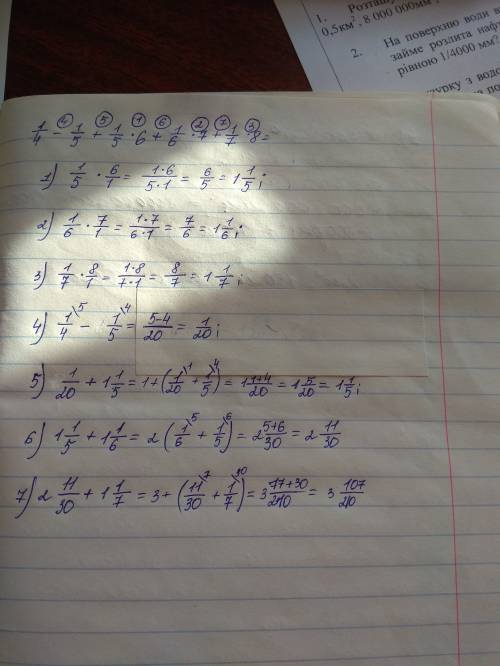 1. Розташу
0,5км², 8 000 000мм
2. На поверхню води в
займе розлита наф
рівною 1/4000 мм?
1/4 - 1/5 + 1/5 · 6 + 1/6 · 7 + 1/7 · 8 =
④ ⑤ ① ⑥ ② ⑦ ③
1) 1/5 · 6/1 = 1·6/5·1 = 6/5 = 1 1/5;
2) 1/6 · 7/1 = 1·7/6·1 = 7/6 = 1 1/6;
3) 1/7 · 8/1 = 1·8/7·1 = 8/7 = 1 1/7;
4) 1/4 \5 - 1/5 \4 = 5-4/20 = 1/20;
5) 1/20 + 1 1/5 = 1 + (1/20 \1 + 1/5 \4) = 1 1+4/20 = 1 5/20 = 1 1/5;
6) 1 1/5 + 1 1/6 = 2 (1/6 \5 + 1/5 \6) = 2 5+6/30 = 2 11/30
7) 2 11/30 + 1 1/7 = 3 + (11/30 \7 + 1/7 \30) = 3 77+30/210 = 3 107/210